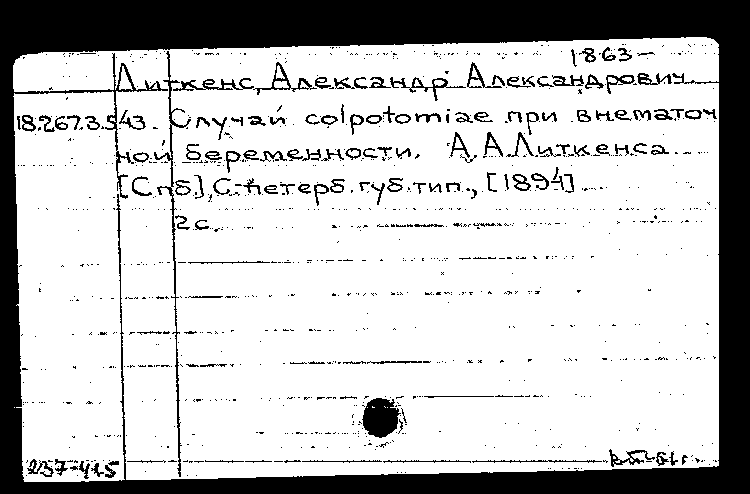 1863-
Литкенс, Александр Александрович.
18.267.3.543. Случай colpotomiae при внематоч
ной беременности. А.А.Литкенса
[Спб], С-петерб. губ. тип., [1894]
2 с.
237-415